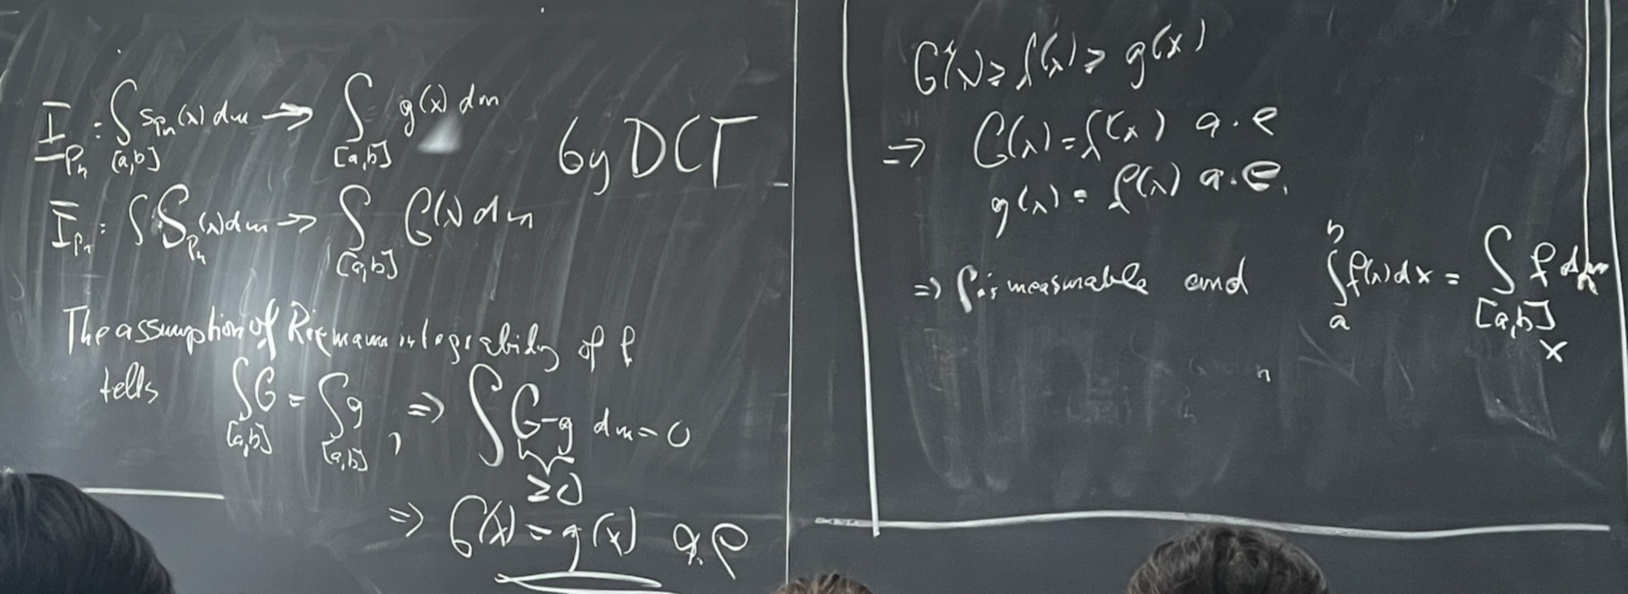 I̲_{P_n} = ∫_{[a,b]} s_{P_n}(x) dm → ∫_{[a,b]} g(x) dm
by DCT
Ī_{P_n} = ∫ S_{P_n}(x) dm → ∫_{[a,b]} G(x) dm
The assumption of Riemann integrability of f
tells ∫_{[a,b]} G = ∫_{[a,b]} g , ⇒ ∫ G-g dm = 0
≥0
⇒ G(x) = g(x) a.e
G(x) ≥ f(x) ≥ g(x)
⇒ G(x) = f(x) a.e
g(x) = f(x) a.e.
⇒ f is measurable and ∫_a^b f(x) dx = ∫_{[a,b]} f dm
x